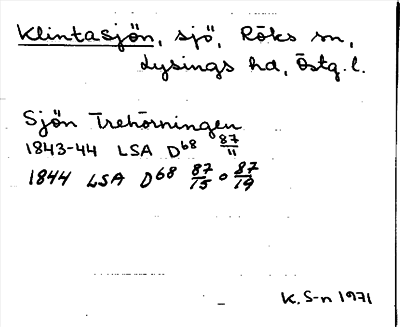 Klintasjön, sjö, Röks sn,
Lysings hd, Östg. l.
Sjön Trehörningen
1843-44 LSA D68 87/11
1844 LSA D68 87/15 o 87/19
K. S-n 1971